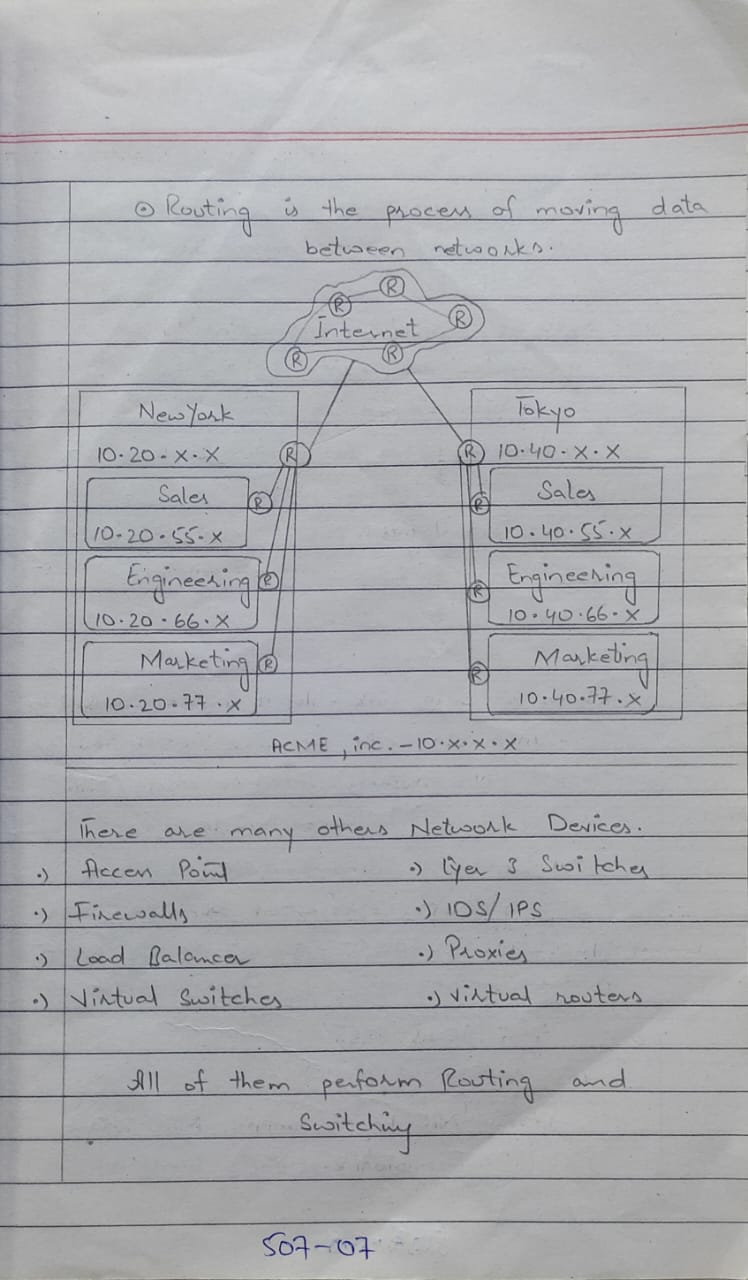 ⊙ Routing is the process of moving data
between networks.
R
R
Internet
R
R
R
New York
10.20.x.x
R
Sales
R
10.20.55.x
Engineering
R
10.20.66.x
Marketing
R
10.20.77.x
Tokyo
R
10.40.x.x
Sales
R
10.40.55.x
Engineering
R
10.40.66.x
Marketing
R
10.40.77.x
ACME, inc. - 10.x.x.x
There are many others Network Devices.
.) Access Point .) lyer 3 Switches
.) Firewalls .) IDS/IPS
.) Load Balancer .) Proxies
.) Virtual Switches .) Virtual routers
All of them perform Routing and
Switching
507-07